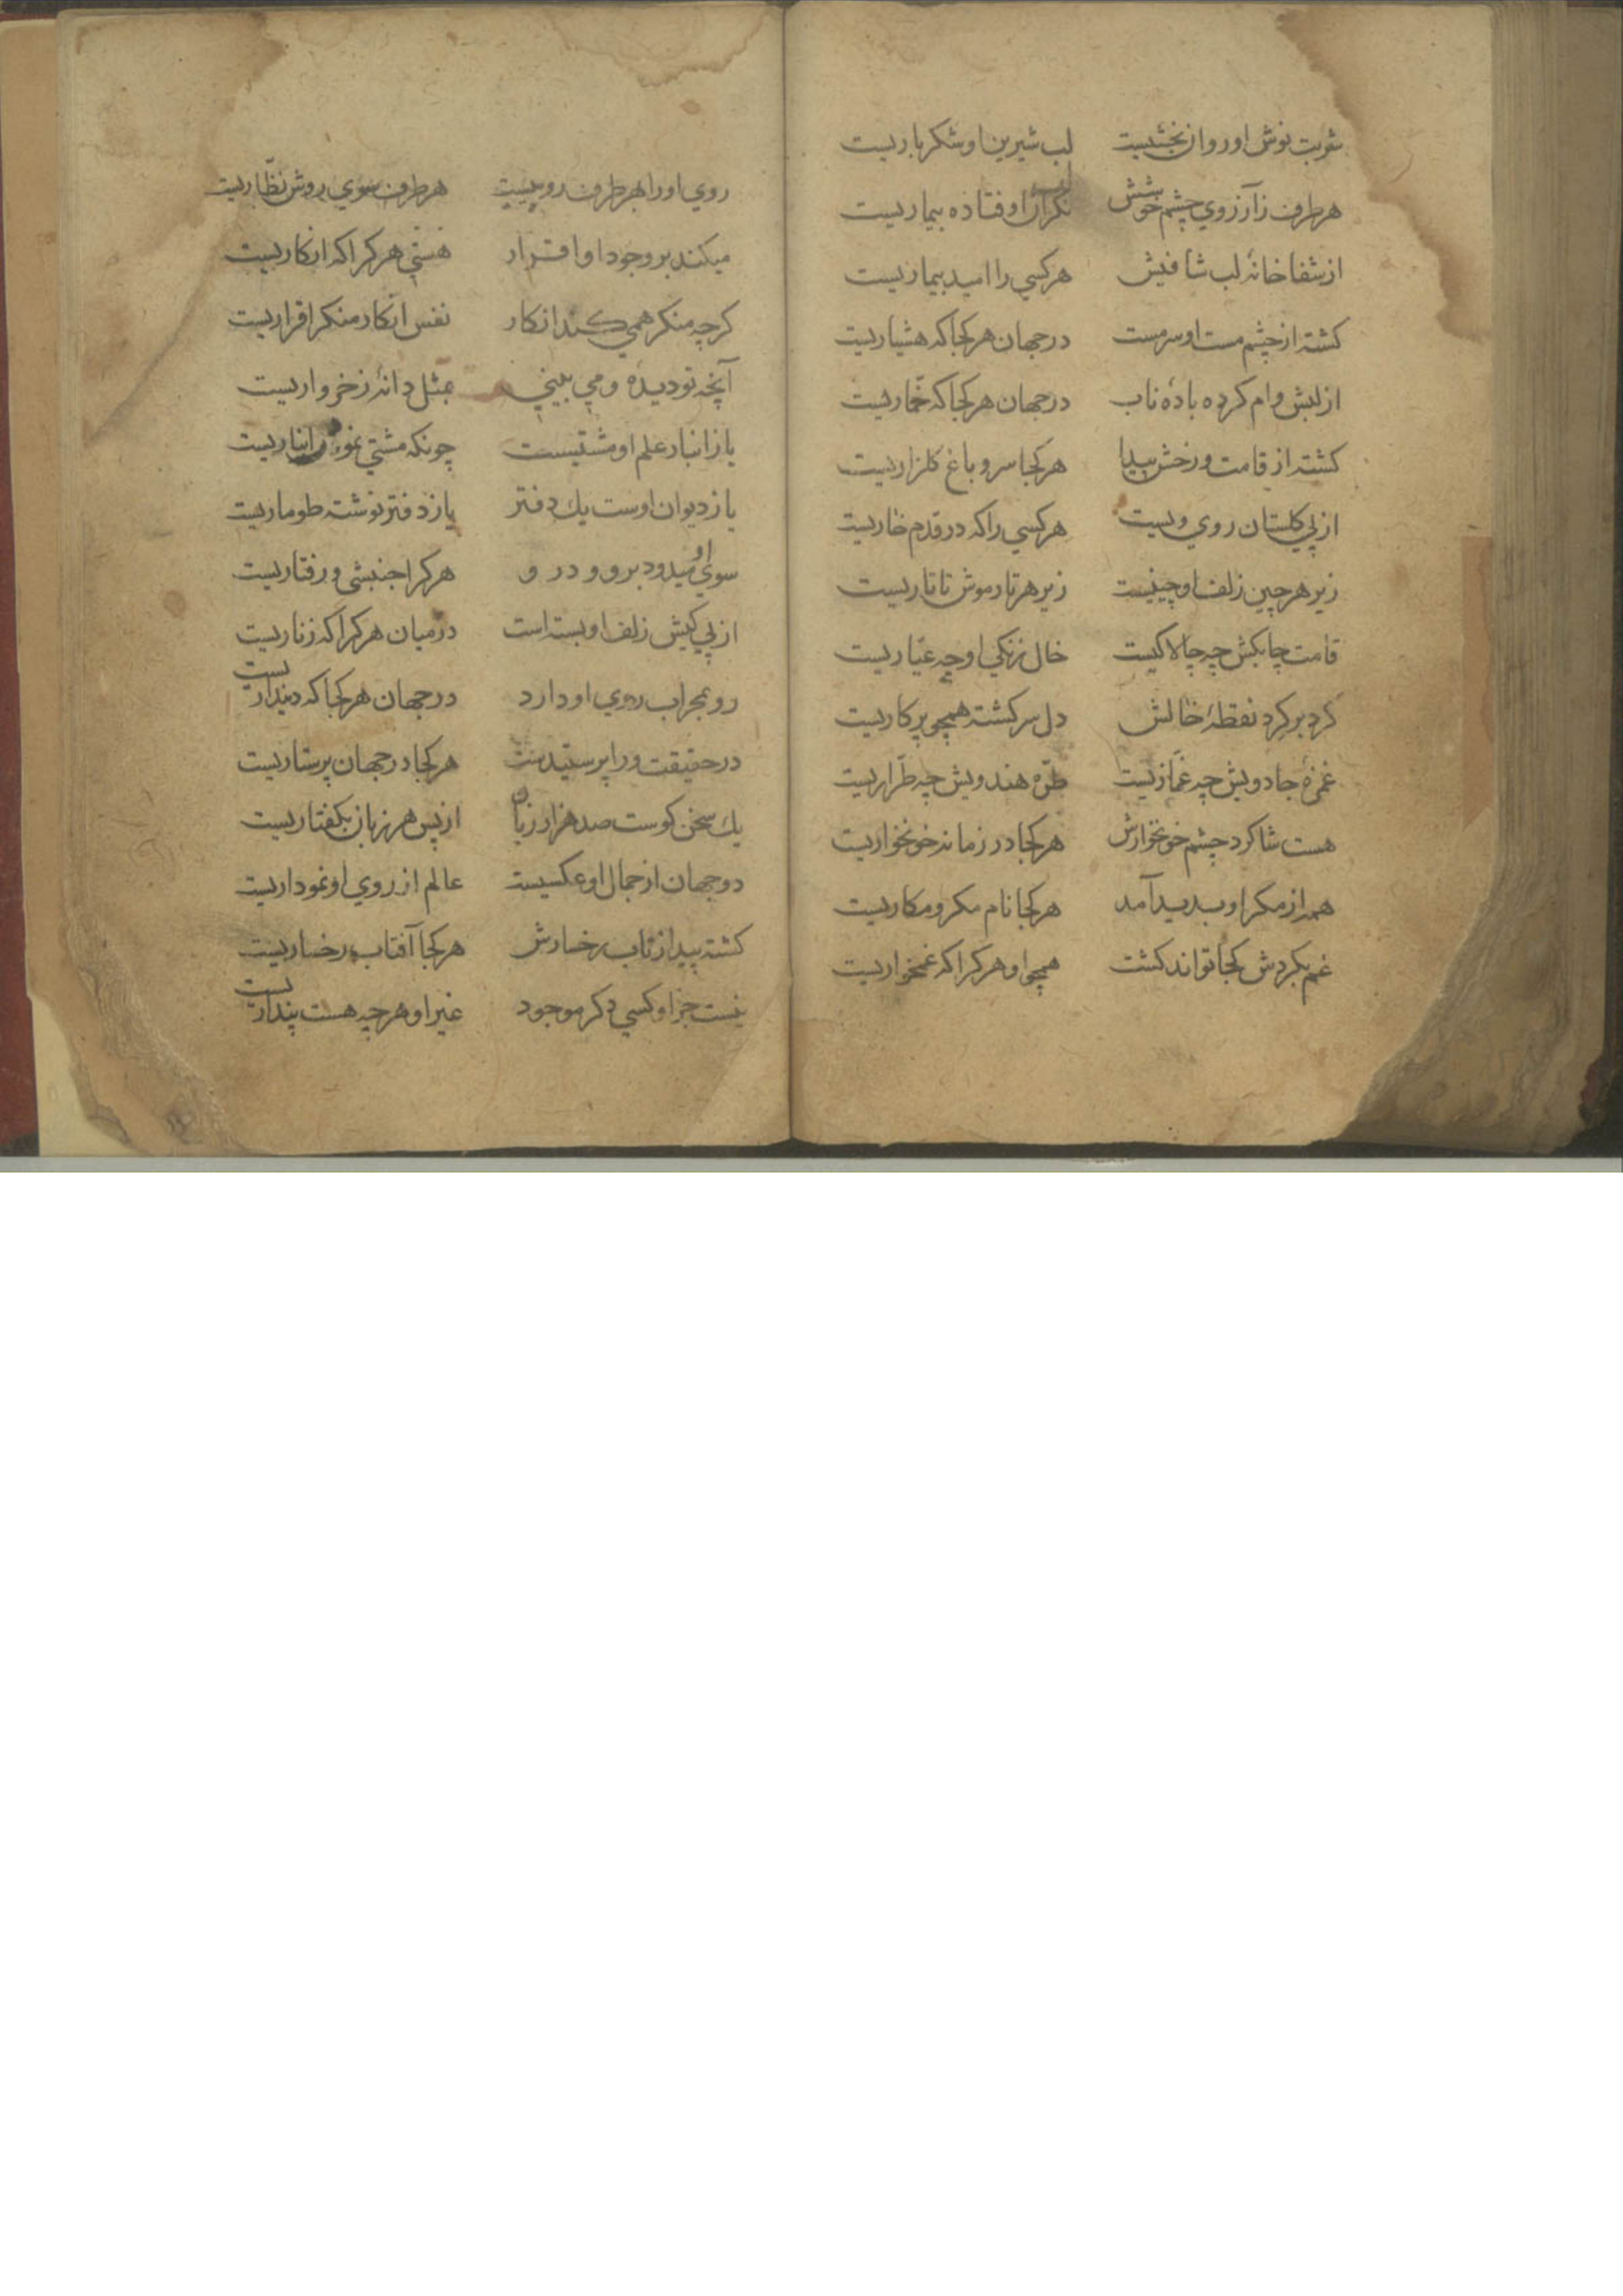 شربت نوش او روان بخشیست لب شیرین او شکرباریست
هر طرف زآرزوی چشم خوشش نکران اوفتاده بیماریست
از شفاخانهٔ لب شافیش هرکسی را امید بیماریست
کشته از چشم مست او سرمست در جهان هرکجا که هشیاریست
از لبش وام کرده بادهٔ ناب در جهان هرکجا که خمّاریست
کشته از قامت و رخش پیدا هرکجا سرو باغ کلزاریست
از پی کلستان روی ویست هرکسی را که در قدم خاریست
زیر هر چین زلف او چینیست زیر هر تار موش تاتاریست
قامت چابکش چه چالاکیست خال زنکی او چه عیّاریست
کرد بر کرد نقطهٔ خالش دل سرکشته همچو پرکاریست
غمزهٔ جادویش چه غمّازیست طرّه هندویش چه طرّاریست
هست شاکرد چشم خونخوارش هرکجا در زمانه خونخواریست
همه از مکر او بدید آمد هرکجا نام مکر و مکاریست
غم بکردش کجا تواند کشت همچو او هرکرا که غمخواریست
روی او را بهر طرف روییست هر طرف سوی روش نظّاریست
میکند بر وجود او اقرار هستی هرکرا که انکاریست
کرچه منکر همی کند انکار نفس انکار منکر اقراریست
آنچه تو دیدهٔ و می بینی بمثل دانهٔ ز خرواریست
یا ز انبار علم او مشتیست چونکه مشتی نمونه ز انباریست
یا ز دیوان اوست یک دفتر یا ز دفتر نوشته طوماریست
سوی او میدود برو و درو هرکرا جنبشی و رفتاریست
از پی کیش زلف او بسته است در میان هرکرا که زناریست
رو بمحراب روی او دارد در جهان هرکجا که دینداریست
در حقیقت ورا پرستیدست هرکجا در جهان پرستاریست
یک سخن کوست صد هزار زبان از پس هر زبان بکفتاریست
دو جهان از جمال او عکسیست عالم از روی او نموداریست
کشته پیدا ز تاب رخسارش هرکجا آفتاب رخساریست
نیست جز او کسی دکر موجود غیر او هرچه هست پنداریست